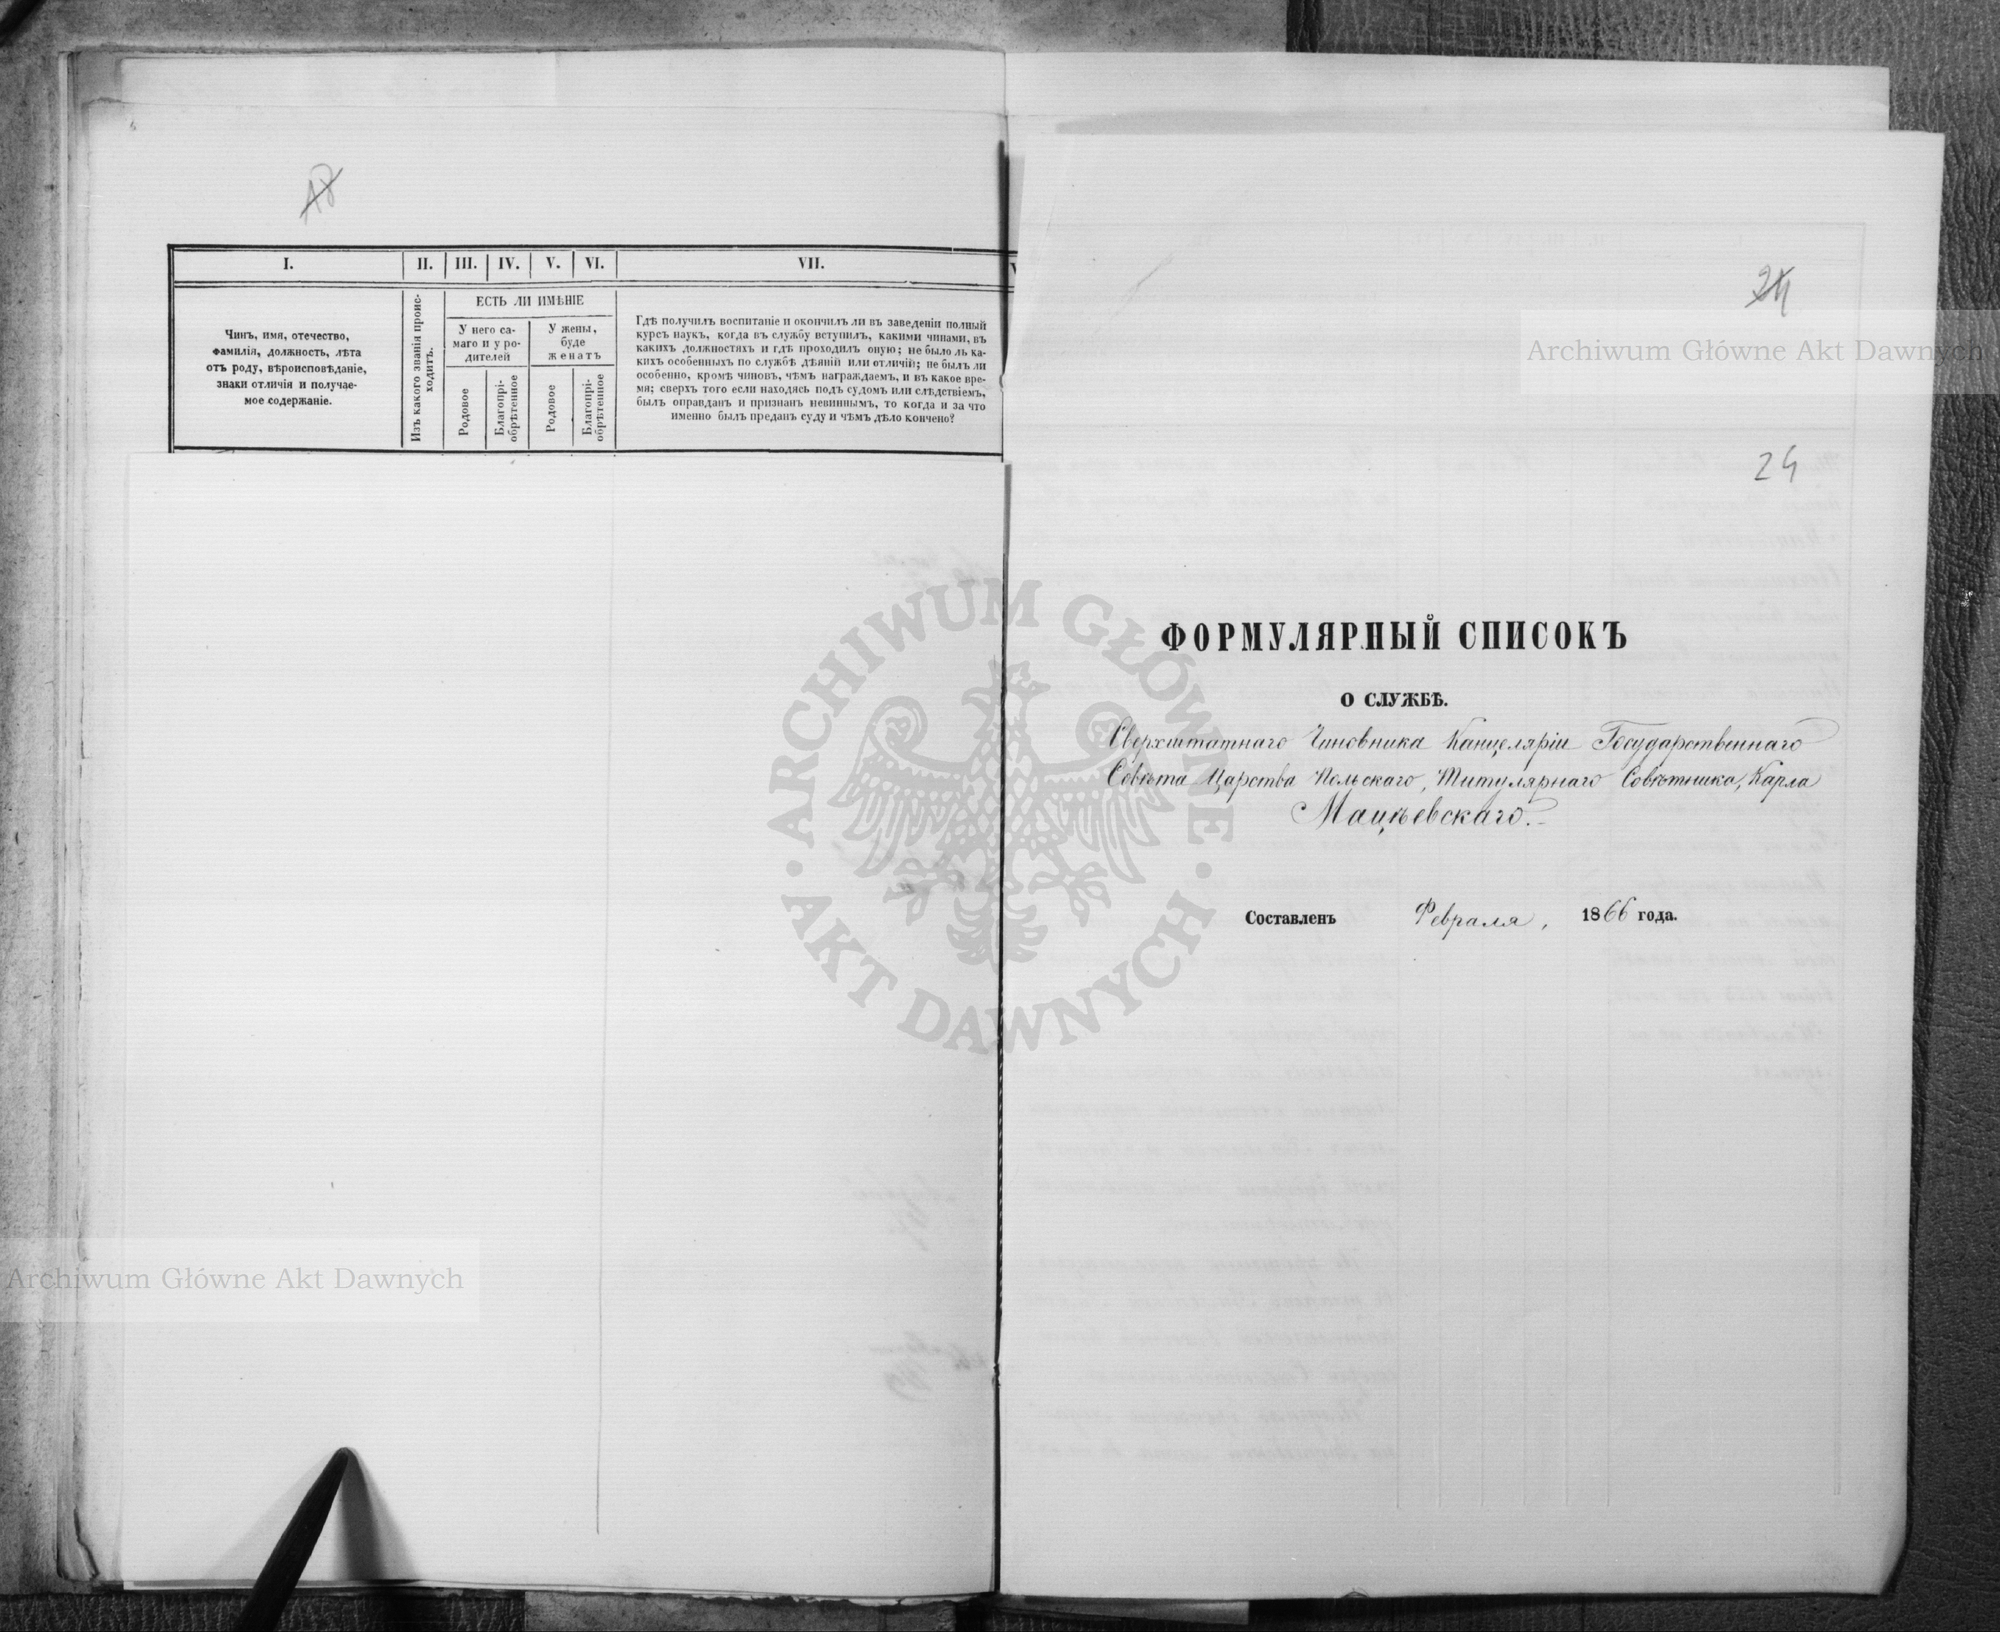 18
I.
II.
III.
IV.
V.
VI.
VII.
Чинъ, имя, отечество,
фамилія, должность, лѣта
отъ роду, вѣроисповѣданіе,
знаки отличія и получае-
мое содержаніе.
Изъ какого званія проис-
ходитъ.
ЕСТЬ ЛИ ИМѢНІЕ
У него са-
маго и у ро-
дителей
У жены,
буде
женатъ
Родовое
Благопрі-
обрѣтенное
Родовое
Благопрі-
обрѣтенное
Гдѣ получилъ воспитаніе и окончилъ ли въ заведеніи полный
курсъ наукъ, когда въ службу вступилъ, какими чинами, въ
какихъ должностяхъ и гдѣ проходилъ оную; не было ль ка-
кихъ особенныхъ по службѣ дѣяній или отличій; не былъ ли
особенно, кромѣ чиновъ, чѣмъ награждаемъ, и въ какое вре-
мя; сверхъ того если находясь подъ судомъ или слѣдствіемъ,
былъ оправданъ и признанъ невиннымъ, то когда и за что
именно былъ преданъ суду и чѣмъ дѣло кончено?
24
ФОРМУЛЯРНЫЙ СПИСОКЪ
О СЛУЖБѢ.
Сверхштатнаго Чиновника Канцеляріи Государственнаго
Совѣта Царства Польскаго, Титулярнаго Совѣтника, Карла
Мацѣевскаго.
Составленъ Февраля, 1866 года.
Archiwum Główne Akt Dawnych
Archiwum Główne Akt Dawnych
ARCHIWUM GŁÓWNE
AKT DAWNYCH